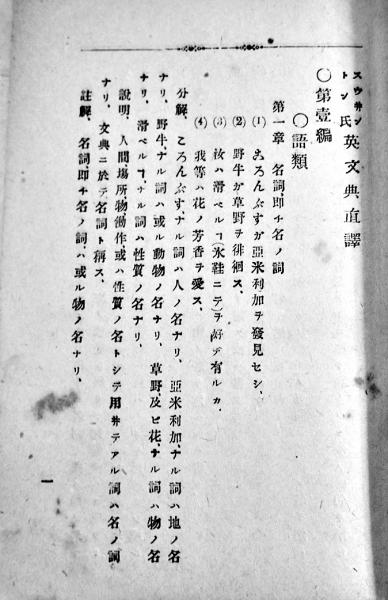 スウ井ントン氏英文典直譯
〇第壹編
〇語類
第一章 名詞即チ名ノ詞
(1) ころんぶすガ亞米利加ヲ發見セシ、
(2) 野牛ガ草野ヲ徘徊ス、
(3) 汝ハ滑ベルヿ(氷鞋ニテ)ヲ好デ有ルカ、
(4) 我等ハ花ノ芳香ヲ愛ス、
分解、ころんぶす、ナル詞ハ人ノ名ナリ、亞米利加、ナル詞ハ地ノ名
ナリ、野牛、ナル詞ハ或ル動物ノ名ナリ、草野、及ビ花、ナル詞ハ物ノ名
ナリ、滑ベルヿ、ナル詞ハ性質ノ名ナリ、
說明、人間、塲所物働作、或ハ性質ノ名トシテ用井テアル詞ハ名ノ詞
ナリ、文典ニ於テ名詞ト稱ス、
註解、名詞、即チ名ノ詞、ハ或ル物ノ名ナリ、
一